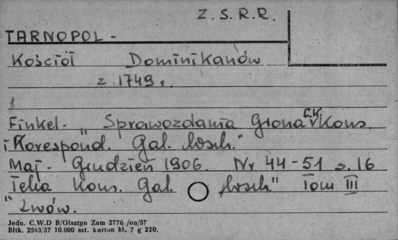 Z. S. R. R.
TARNOPOL -
Kościół Dominikanów
z 1749 r.
Finkel - "Sprawozdania Grona c.k. Kons.
i Korespond. Gal. wsch."
Maj - Grudzień 1906. Nr 44-51 s. 16
Teka Kons. Gal. wsch" Tom III
" Lwów.
Jedn. C.W.D B/Olsztyn Zam 2776/on/57
Bltk. 2563/57 10.000 szt. karton kl. 7 g 220.